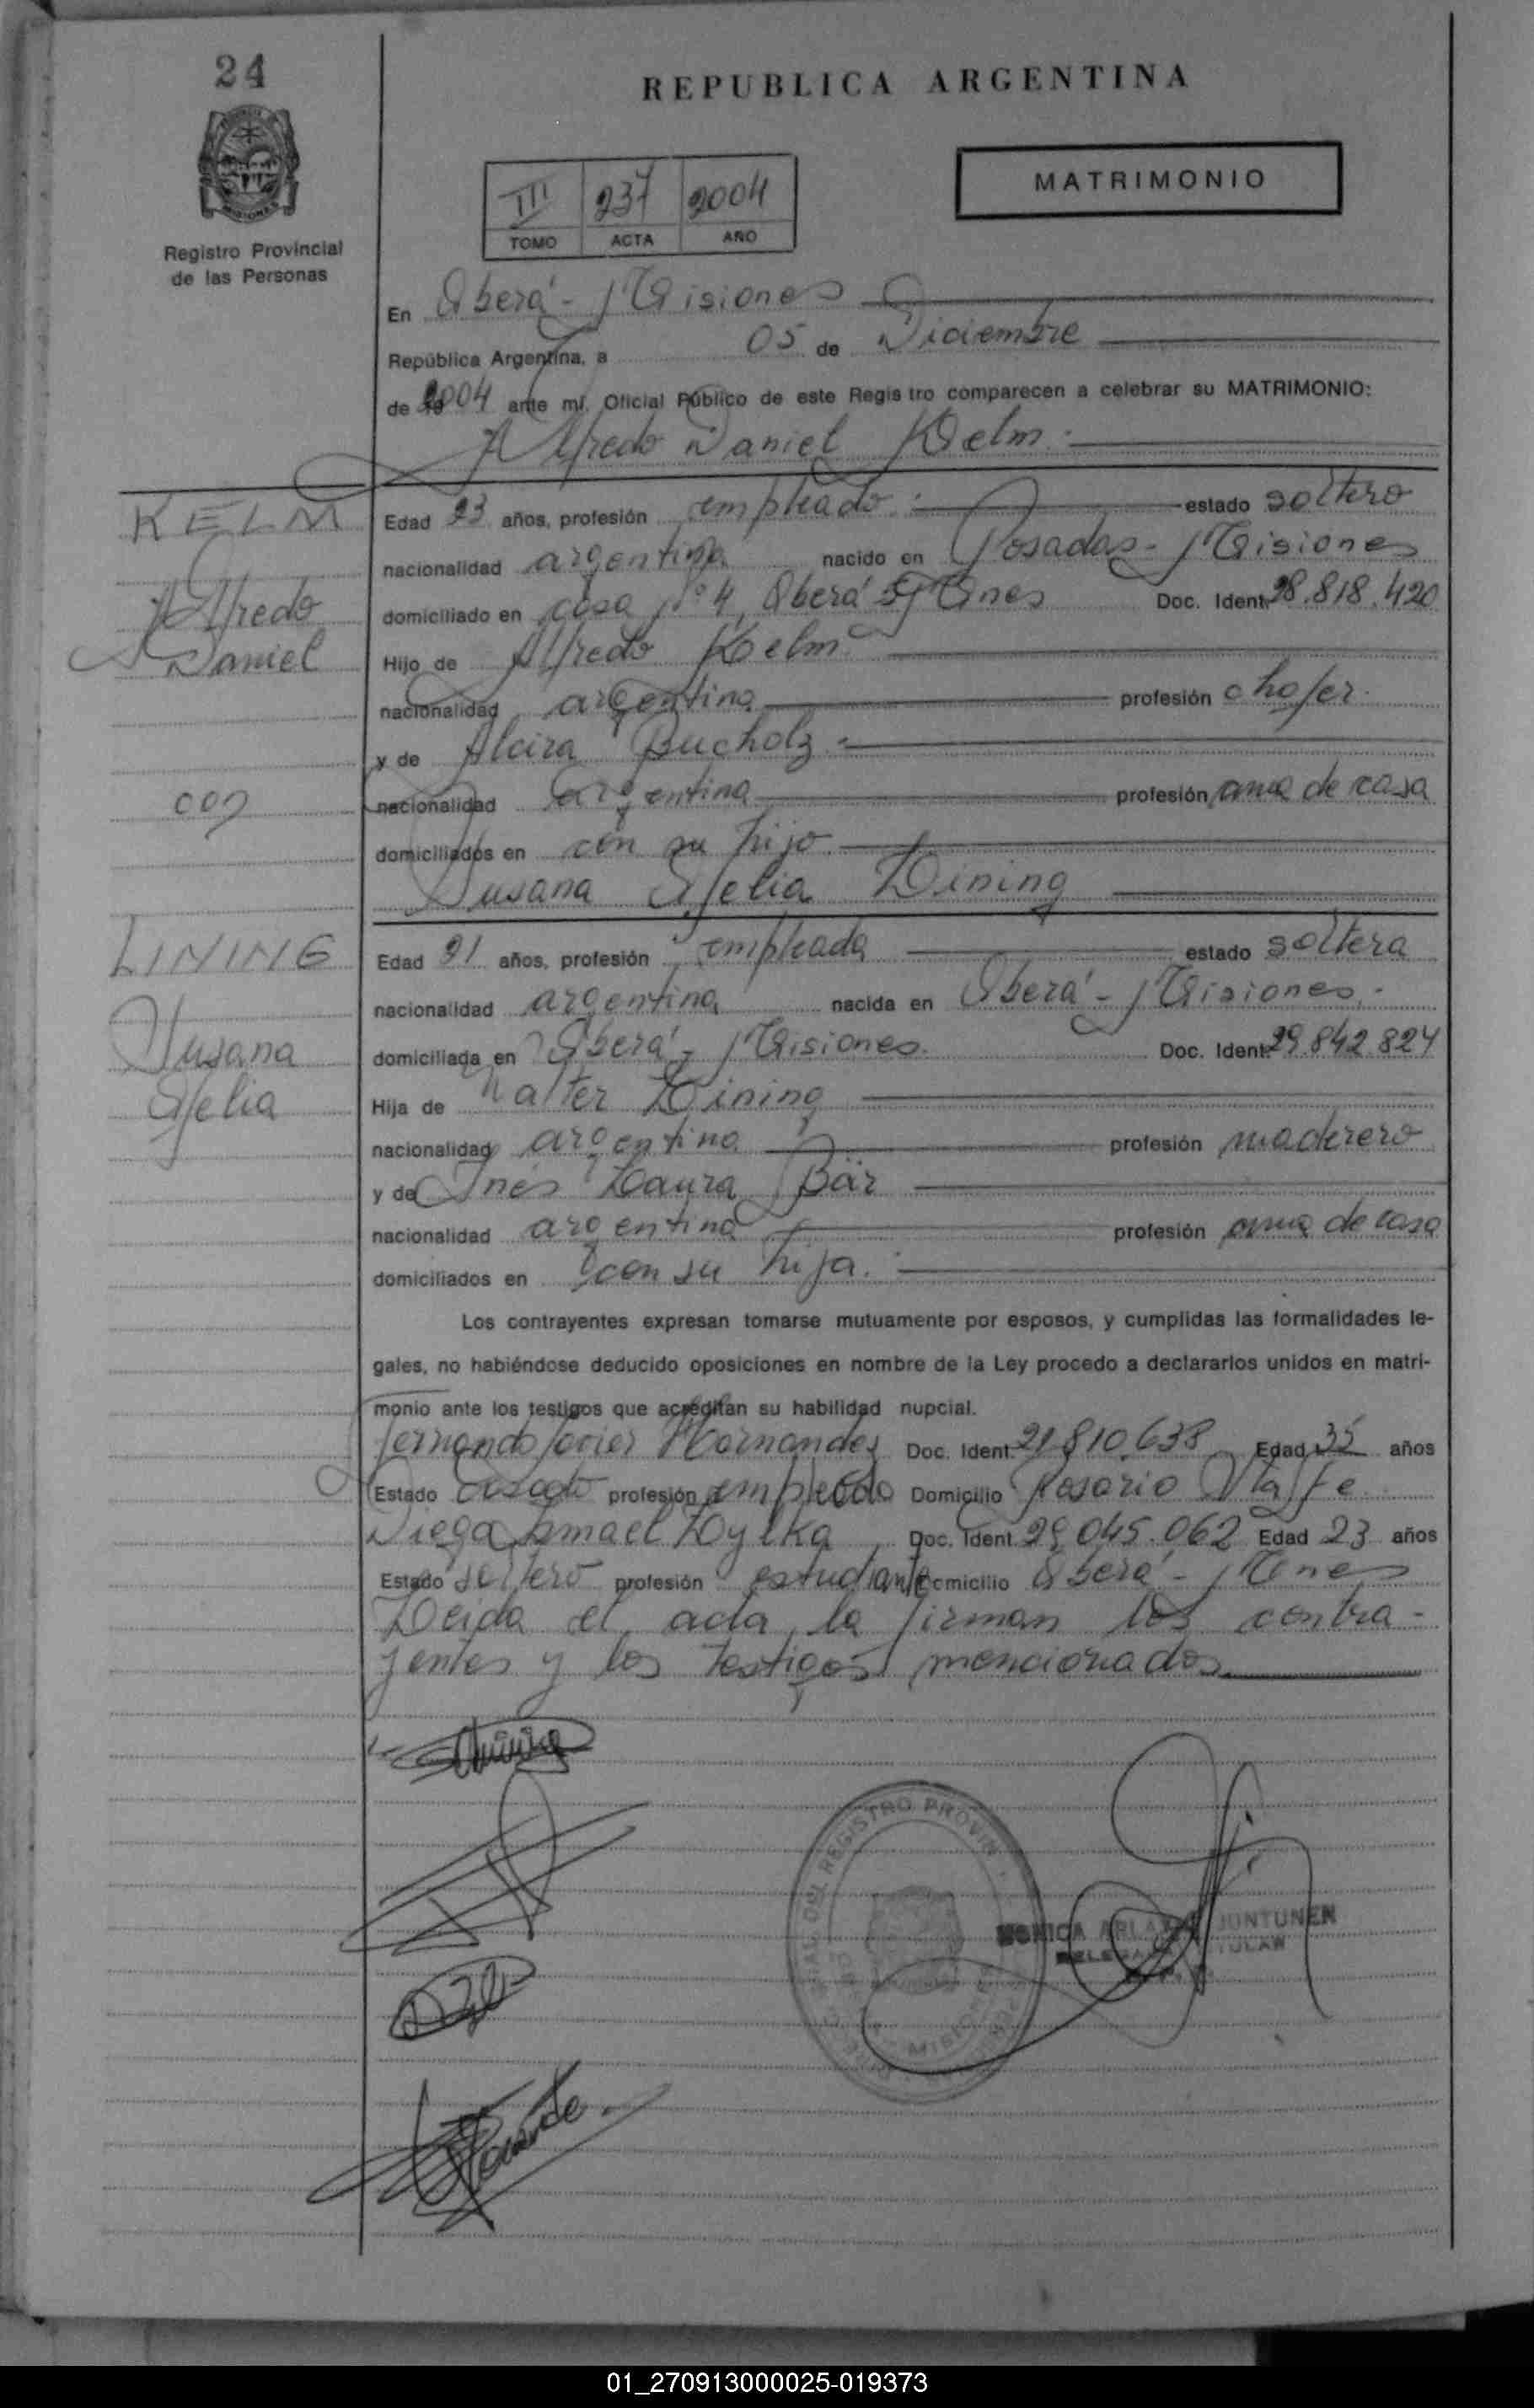 24
REPUBLICA ARGENTINA
MATRIMONIO
III 237 2004
TOMO ACTA AÑO
MISIONES
Registro Provincial
de las Personas
En Oberá - Misiones
República Argentina, a 05 de Diciembre
de 2004 ante mí, Oficial Público de este Registro comparecen a celebrar su MATRIMONIO:
Alfredo Daniel Kelm.
KELM
Alfredo
Daniel
con
LINING
Susana
Ofelia
Edad 23 años, profesión empleado. estado soltero
nacionalidad argentina nacido en Posadas - Misiones
domiciliado en casa nº 4, Oberá Mnes Doc. Ident. 28.818.420
Hijo de Alfredo Kelm
nacionalidad argentina profesión chofer.
y de Alcira Bucholz
nacionalidad argentina profesión ama de casa
domiciliados en con su hijo.
Susana Ofelia Lining
Edad 21 años, profesión empleada estado soltera
nacionalidad argentina nacida en Oberá - Misiones.
domiciliada en Oberá - Misiones. Doc. Ident. 29.842.824
Hija de Walter Lining
nacionalidad argentina profesión maderero
y de Inés Laura Bär
nacionalidad argentina profesión ama de casa
domiciliados en con su hija.
Los contrayentes expresan tomarse mutuamente por esposos, y cumplidas las formalidades le-
gales, no habiéndose deducido oposiciones en nombre de la Ley procedo a declararlos unidos en matri-
monio ante los testigos que acreditan su habilidad nupcial.
Fernando Javier Hornandes Doc. Ident. 21.810.638 Edad 35 años
Estado Casado profesión empleado Domicilio Rosario Sta Fe
Diego Ismael Zylka Doc. Ident. 29.045.062 Edad 23 años
Estado soltero profesión estudiante Domicilio Oberá - Mnes
Leida el acta, la firman los contra-
yentes y los testigos mencionados.
REGISTRO PROVIN
MISIONES
MONICA JUNTUNEN
01_270913000025-019373